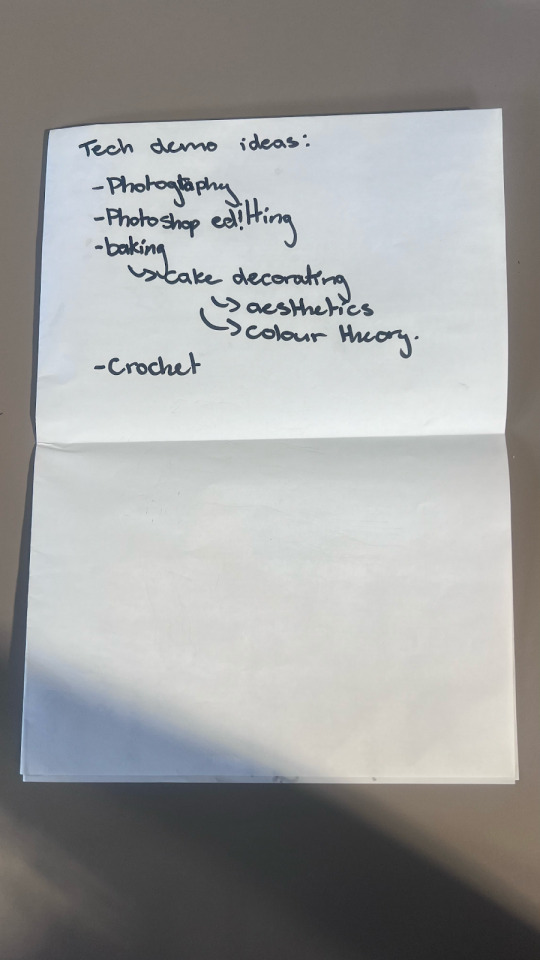 Tech demo ideas:
-Photography
-Photoshop editting
-baking
↳cake decorating
↳aesthetics
↳colour theory.
-Crochet